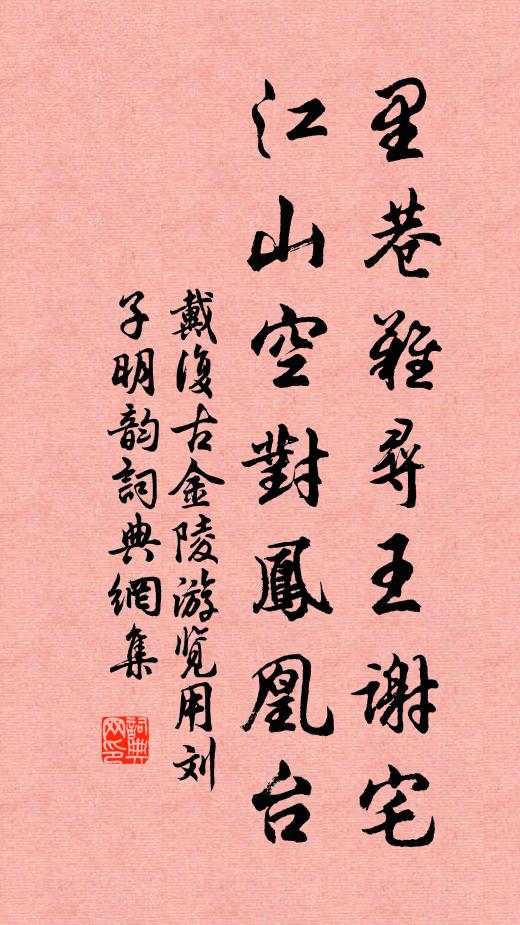 里巷難尋王謝宅
江山空對鳳凰台
戴復古金陵游覽用刘
子明韵詞典網集
詞典
网印